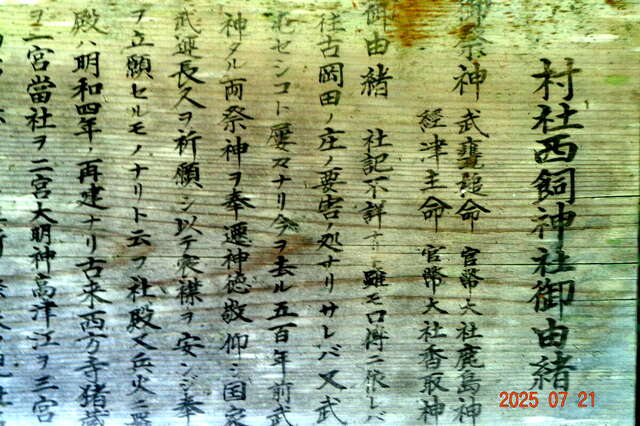 村社西飼神社御由緒
御祭神 武甕槌命 官幣大社鹿島神
経津主命 官幣大社香取神
御由緒 社記不詳ナリト雖モ口碑ニ依レバ
往古岡田ノ庄ノ要害ノ処ナリサレバ又武
化センコト屡々ナリ今ヲ去ル五百年前武
神タル両祭神ヲ奉遷神徳敬仰シ国家
武運長久ヲ祈願シ以テ衆襟ヲ安ンジ奉
ヲ立願セルモノナリト云フ社殿又兵火ニ
殿ハ明和四年再建ナリ古来西方寺猪蔵
ヲ一宮當社ヲ二宮大明神高津江ヲ三宮
2025 07 21